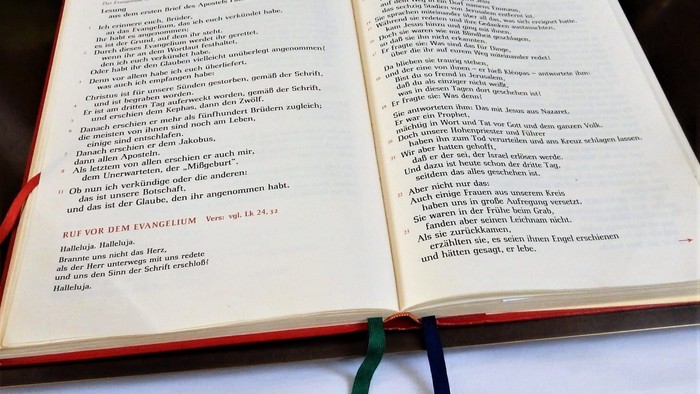 Lesung
aus dem ersten Brief des Apostels
1 Ich erinnere euch, Brüder,
an das Evangelium, das ich euch verkündet habe.
Ihr habt es angenommen;
es ist der Grund, auf dem ihr steht.
2 Durch dieses Evangelium werdet ihr gerettet,
wenn ihr an dem Wortlaut festhaltet,
den ich euch verkündet habe.
Oder habt ihr den Glauben vielleicht unüberlegt angenommen?
3 Denn vor allem habe ich euch überliefert,
was auch ich empfangen habe:
Christus ist für unsere Sünden gestorben, gemäß der Schrift,
4 und ist begraben worden.
Er ist am dritten Tag auferweckt worden, gemäß der Schrift,
5 und erschien dem Kephas, dann den Zwölf.
6 Danach erschien er mehr als fünfhundert Brüdern zugleich;
die meisten von ihnen sind noch am Leben,
einige sind entschlafen.
7 Danach erschien er dem Jakobus,
dann allen Aposteln.
8 Als letztem von allen erschien er auch mir,
dem Unerwarteten, der „Mißgeburt“.
11 Ob nun ich verkündige oder die anderen:
das ist unsere Botschaft,
und das ist der Glaube, den ihr angenommen habt.
RUF VOR DEM EVANGELIUM Vers: vgl. Lk 24, 32
Halleluja. Halleluja.
Brannte uns nicht das Herz,
als der Herr unterwegs mit uns redete
und uns den Sinn der Schrift erschloß?
Halleluja.
auf dem Weg in ein Dorf namens Emmaus,
das sechzig Stadien von Jerusalem entfernt ist.
Sie sprachen miteinander über all das, was sich ereignet hatte.
Während sie redeten und ihre Gedanken austauschten,
kam Jesus hinzu und ging mit ihnen.
Doch sie waren wie mit Blindheit geschlagen,
so daß sie ihn nicht erkannten.
17 Er fragte sie: Was sind das für Dinge,
über die ihr auf eurem Weg miteinander redet?
Da blieben sie traurig stehen,
18 und der eine von ihnen – er hieß Kleopas – antwortete ihm:
Bist du so fremd in Jerusalem,
daß du als einziger nicht weißt,
was in diesen Tagen dort geschehen ist?
19 Er fragte sie: Was denn?
Sie antworteten ihm: Das mit Jesus aus Nazaret.
Er war ein Prophet,
mächtig in Wort und Tat vor Gott und dem ganzen Volk.
20 Doch unsere Hohenpriester und Führer
haben ihn zum Tod verurteilen und ans Kreuz schlagen lassen.
21 Wir aber hatten gehofft,
daß er der sei, der Israel erlösen werde.
Und dazu ist heute schon der dritte Tag,
seitdem das alles geschehen ist.
22 Aber nicht nur das:
Auch einige Frauen aus unserem Kreis
haben uns in große Aufregung versetzt.
Sie waren in der Frühe beim Grab,
23 fanden aber seinen Leichnam nicht.
Als sie zurückkamen,
erzählten sie, es seien ihnen Engel erschienen
und hätten gesagt, er lebe.